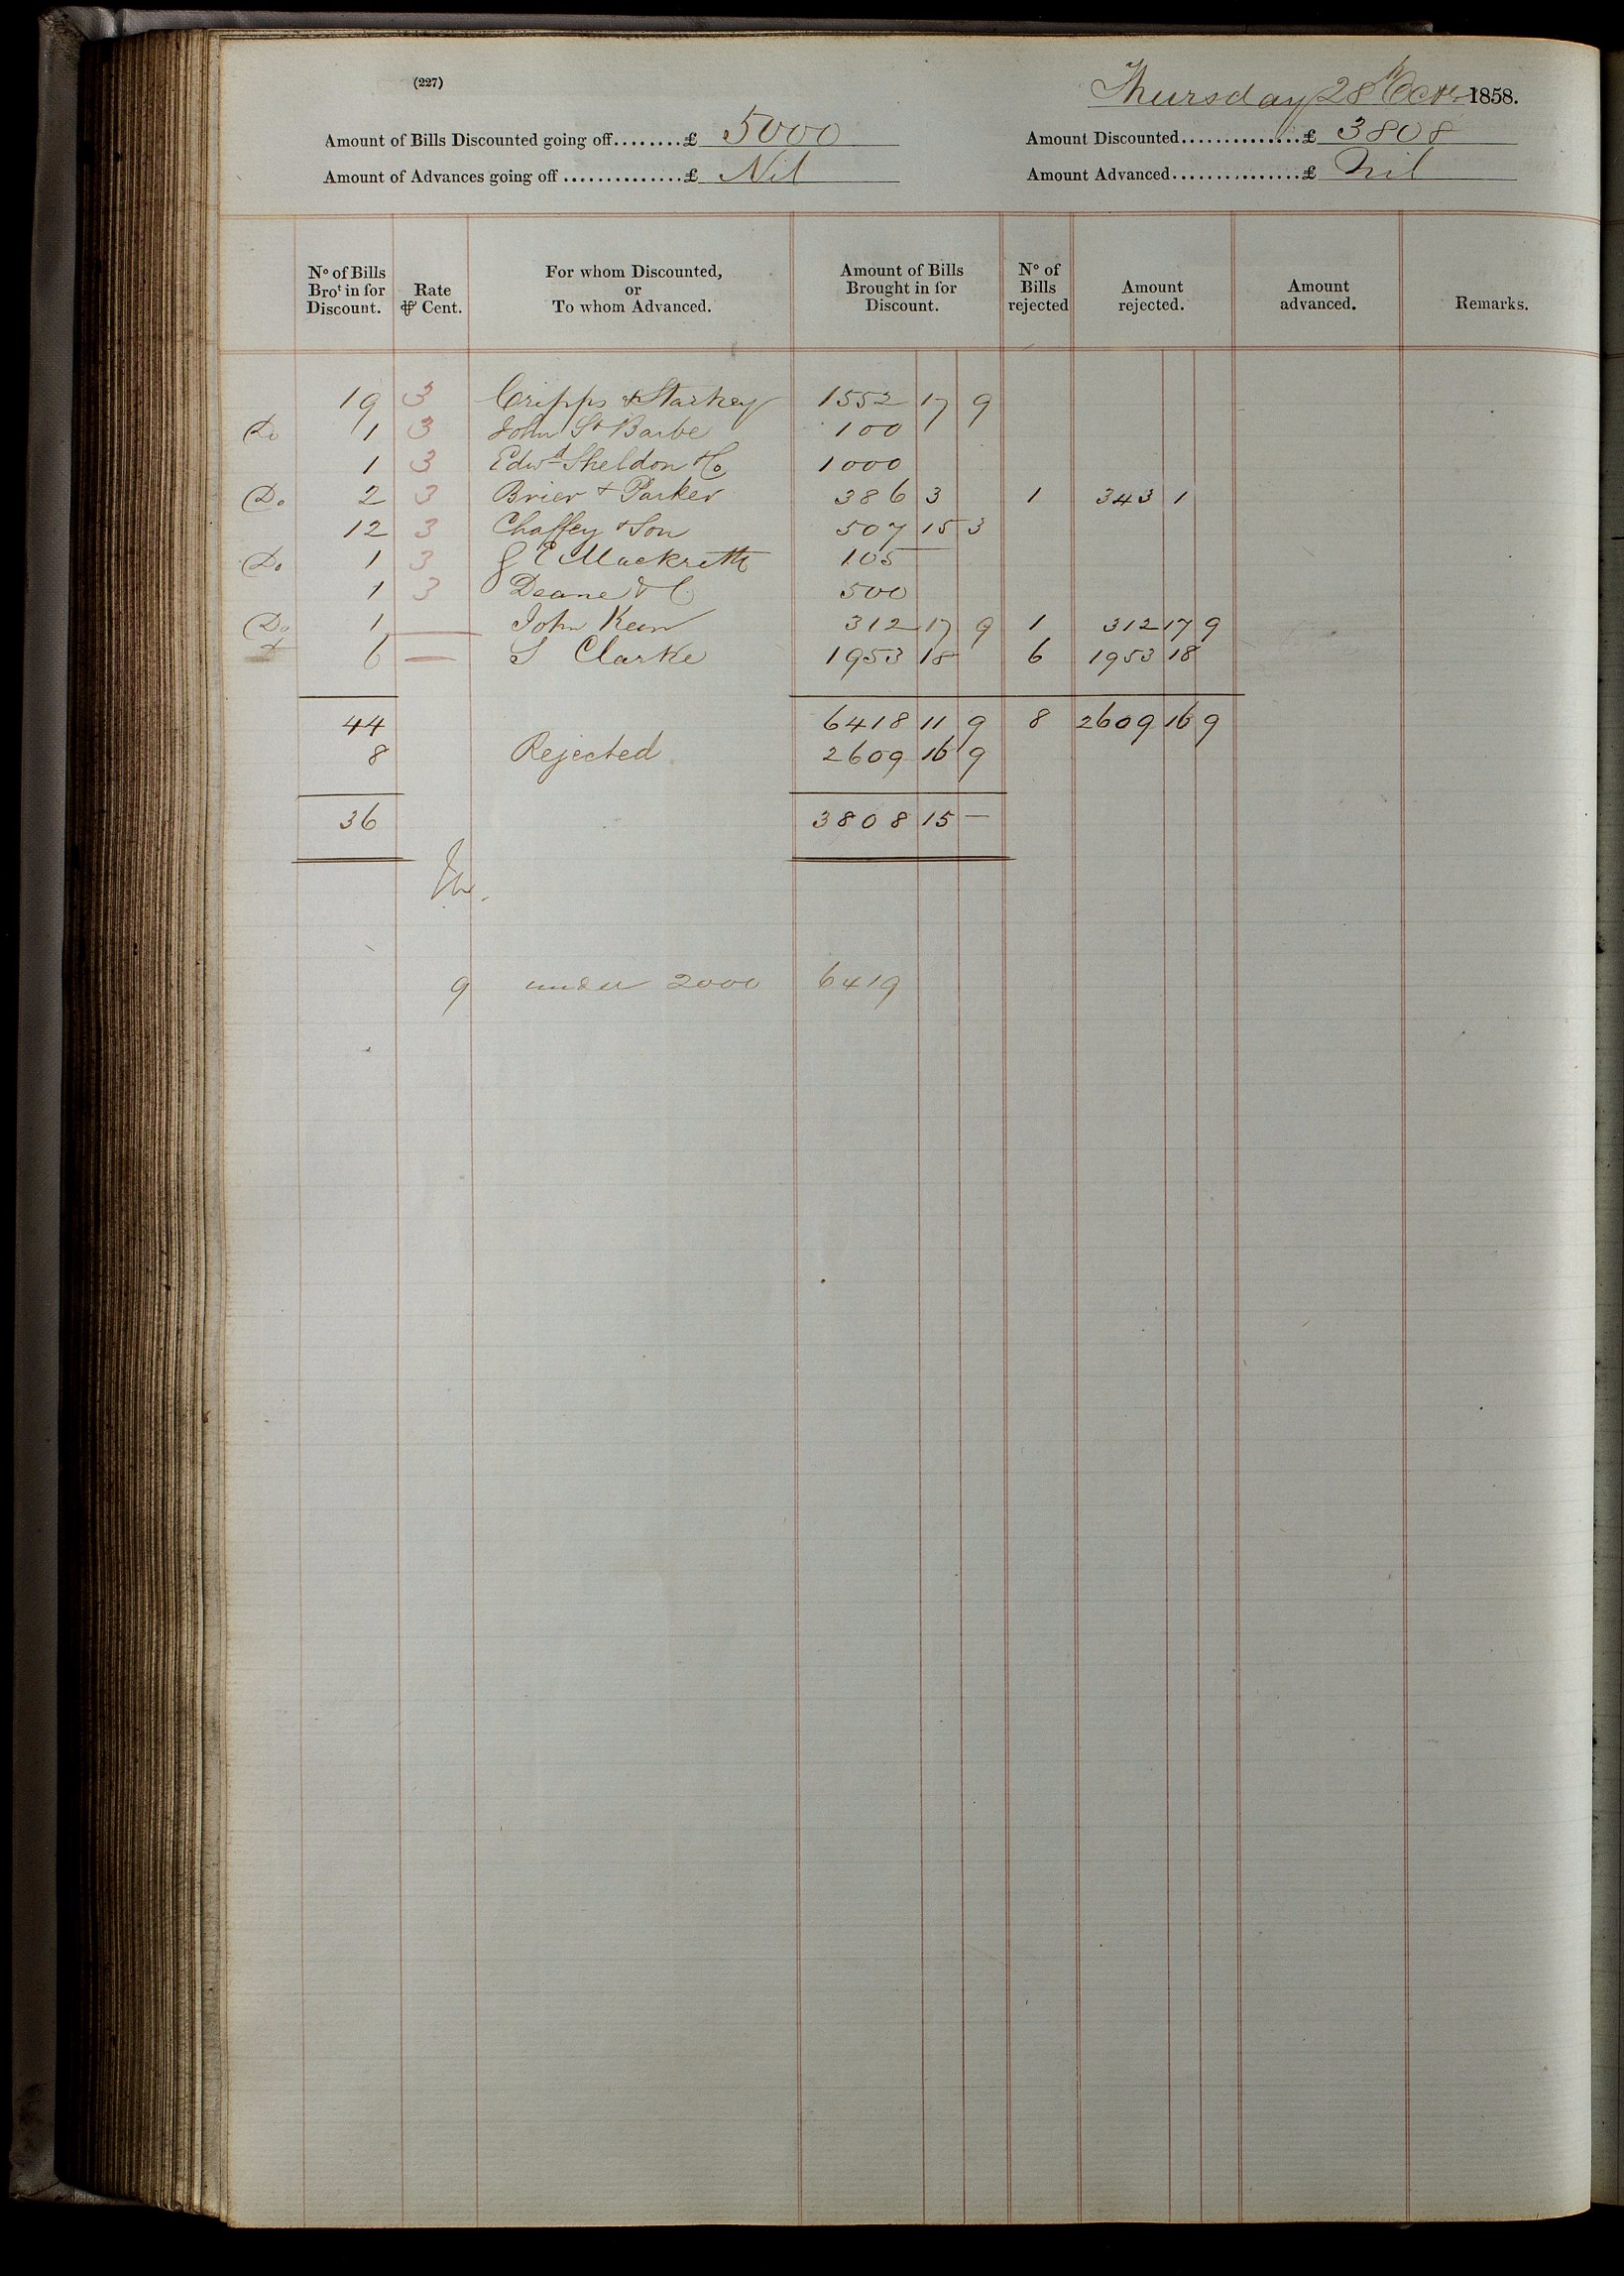 (227)
Thursday 28th Octr 1858.
Amount of Bills Discounted going off........£ 5000
Amount Discounted..............£ 3808
Amount of Advances going off ..............£ Nil
Amount Advanced...............£ Nil
No of Bills Brot in for Discount.
Rate ⅌ Cent.
For whom Discounted, or To whom Advanced.
Amount of Bills Brought in for Discount.
No of Bills rejected
Amount rejected.
Amount advanced.
Remarks.
19 3 Cripps & Starkey 1552 17 9
Do 1 3 John St Barbe 100
1 3 Edwd Sheldon & Co 1000
Do 2 3 Brier & Parker 386 3 1 343 1
12 3 Chaffey & Son 507 15 3
Do 1 3 E Mackreth 105 —
1 3 Deane & C 500
Do 1 — John Keen 312 17 9 1 312 17 9
+ 6 — S Clarke 1953 18 6 1953 18
44 6418 11 9 8 2609 16 9
8 Rejected 2609 16 9
36 3808 15 —
9 under 2000 6419